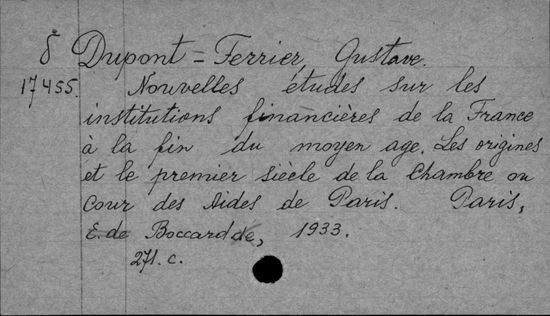 8° Dupont-Ferrier, Gustave.
17455. Nouvelles études sur les
institutions financières de la France
à la fin du moyen age. Les origines
et le premier siècle de la Chambre ou
Cour des Aides de Paris. Paris,
E. de Boccard de, 1933.
271. c.